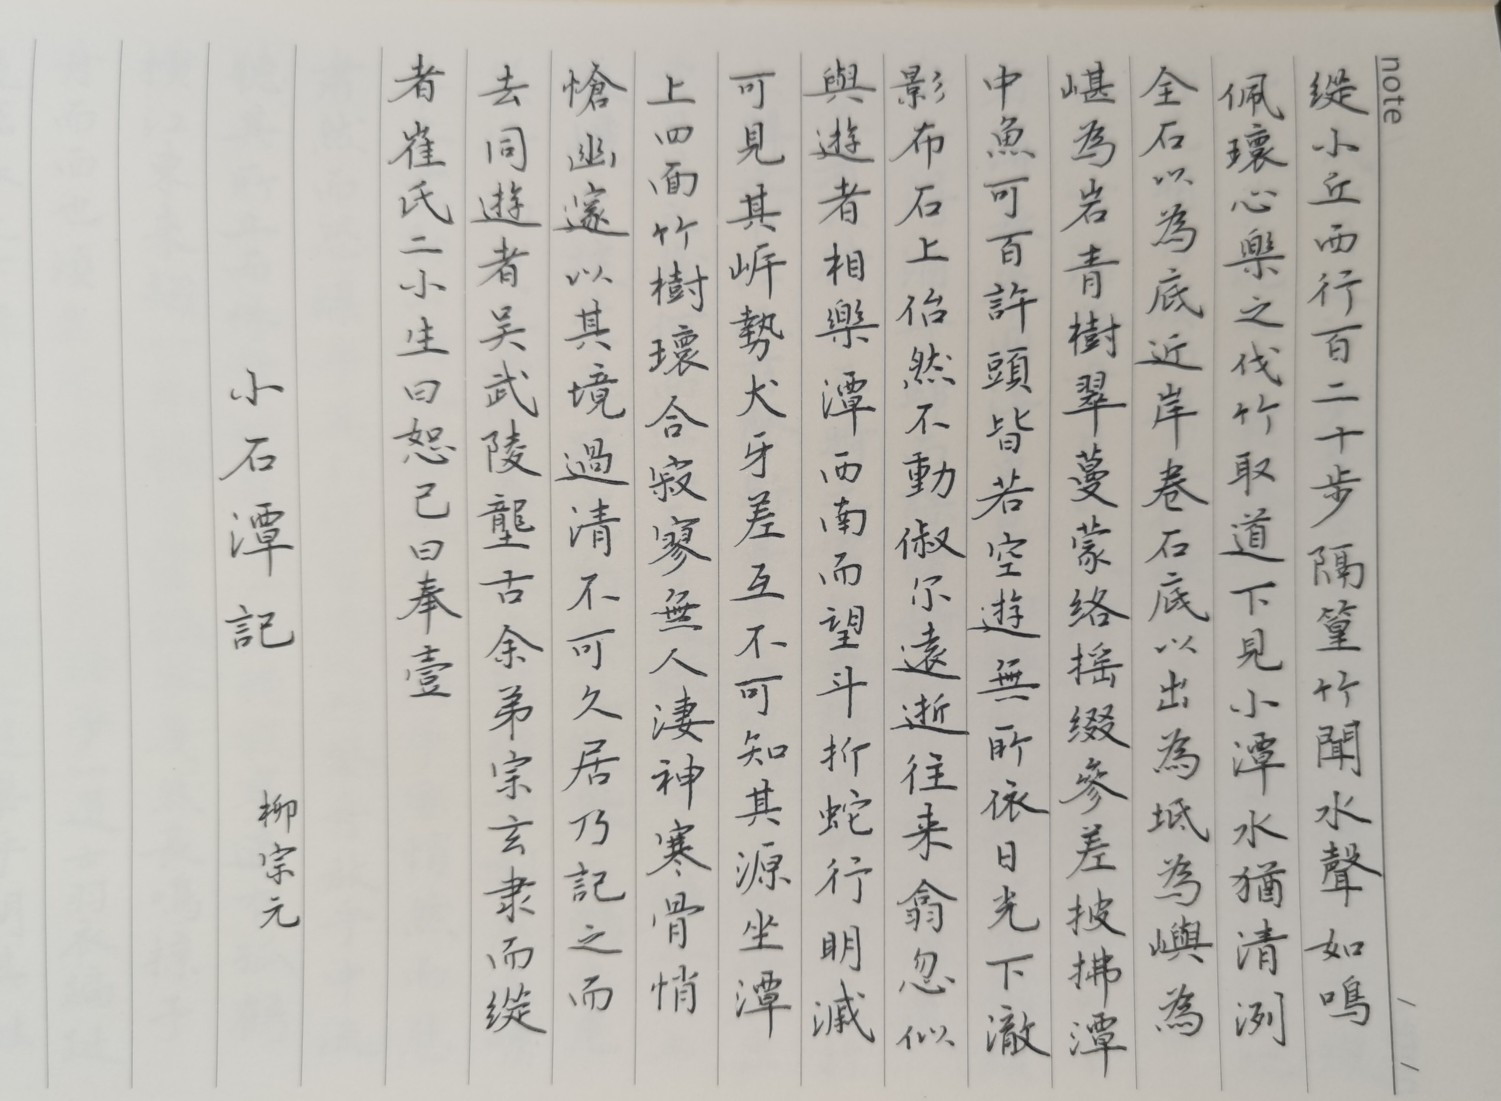 note
縱小丘西行百二十步隔篁竹聞水聲如鳴
佩環心樂之伐竹取道下見小潭水猶清洌
全石以為底近岸卷石底以出為坻為嶼為
嵁為岩青樹翠蔓蒙絡摇綴參差披拂潭
中魚可百許頭皆若空遊無所依日光下澈
影布石上佁然不動俶尔遠逝往来翕忽似
與遊者相樂潭西南而望斗折蛇行明滅
可見其岸勢犬牙差互不可知其源坐潭
上四面竹樹環合寂寥無人淒神寒骨悄
愴幽邃以其境過清不可久居乃記之而
去同遊者吴武陵龔古余弟宗玄隶而縱
者崔氏二小生曰恕己曰奉壹
小石潭記
柳宗元